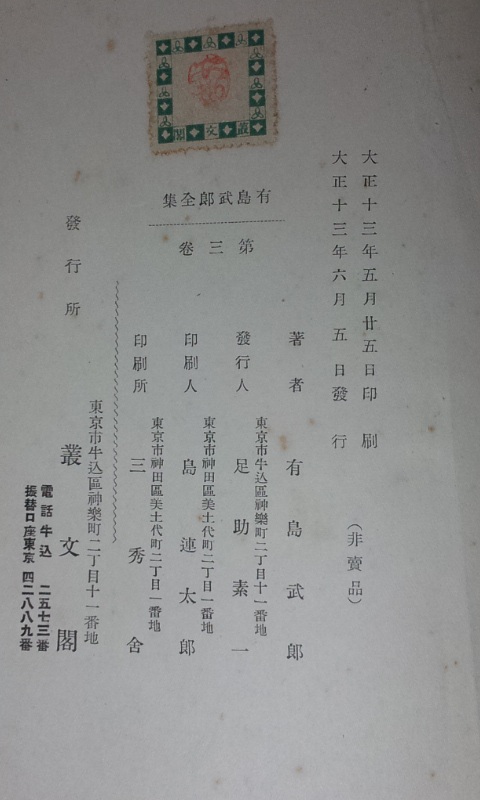 大正十三年五月廿五日印刷
大正十三年六月五日發行
(非賣品)
有島武郎全集
第三卷
著者 有島武郎
東京市牛込區神樂町二丁目十一番地
發行人 足助素一
東京市神田區美土代町二丁目一番地
印刷人 島連太郎
東京市神田區美土代町二丁目一番地
印刷所 三秀舍
東京市牛込區神樂町二丁目十一番地
發行所 叢文閣
電話牛込 二五七三番
振替口座東京 四二八八九番
叢文閣